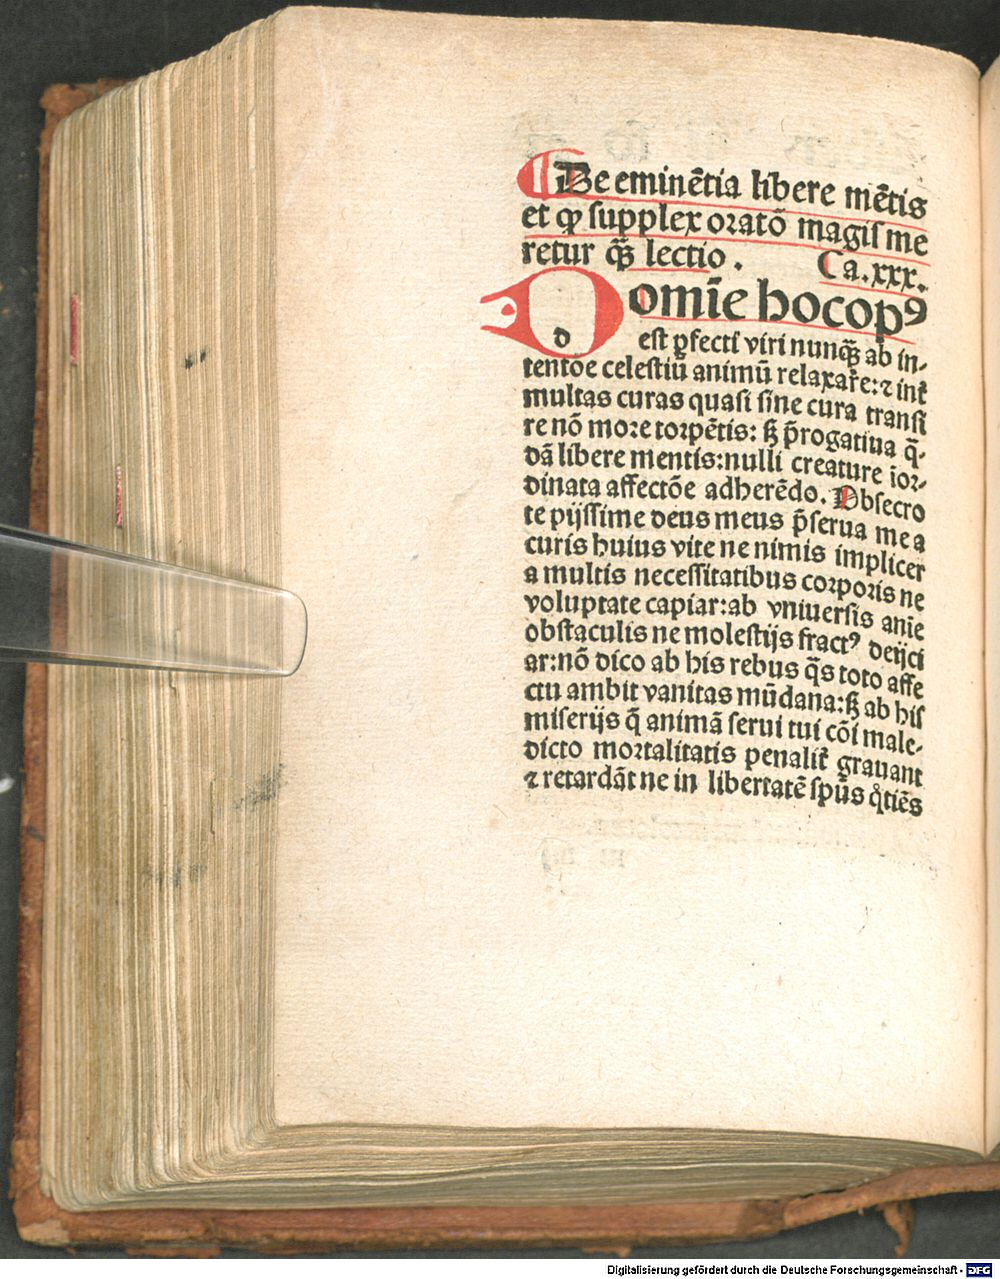 ¶ De eminētia libere mētis
et ꝙ supplex oratō magis me
retur ꝙ̄ȝ lectio . Ca.xxx.
Domīe hoc opꝰ
est ꝑfecti viri nunꝙ̄ȝ ab in-
tentōe celestiū animū relaxar̄e:⁊ int̄
multas curas quasi sine cura transi
re nō more torpētis: sȝ p̄rogatiua q̄-
dā libere mentis:nulli creature īor-
dinata affectōe adherēdo. Obsecro
te pijssime deus meus p̄serua me a
curis huius vite ne nimis implicer
a multis necessitatibus corporis ne
voluptate capiar:ab vniuersis anīe
obstaculis ne molestijs fractꝰ deijci
ar:nō dico ab his rebus q̄s toto affe
ctu ambit vanitas mūdana:sȝ ab his
miserijs q̄ animā serui tui cōi male-
dicto mortalitatis penalit̄ grauant
⁊ retardāt ne in libertatē spūs qͦtiēs
Digitalisierung gefördert durch die Deutsche Forschungsgemeinschaft - DFG